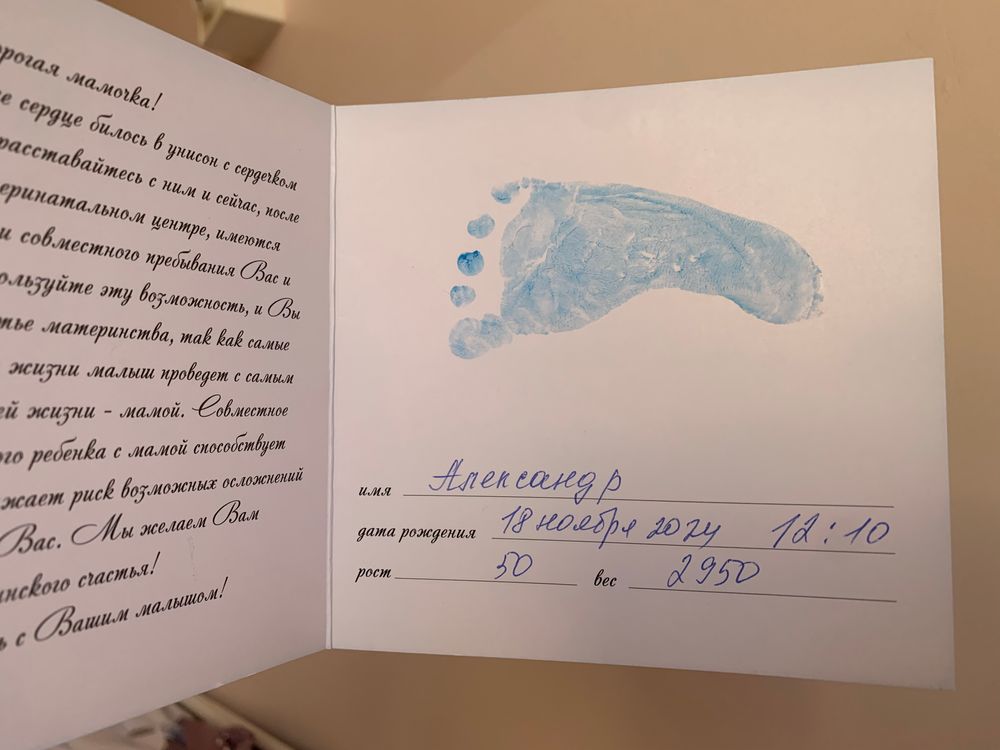 мамочка!
сердце билось в унисон с сердечком
расставайтесь с ним и сейчас, после
центре, имеются
и совместного пребывания Вас и
эту возможность, и Вы
материнства, так как самые
жизни малыш проведет с самым
жизни - мамой. Совместное
ребенка с мамой способствует
риск возможных осложнений
Вас. Мы желаем Вам
счастья!
с Вашим малышом!
имя Александр
дата рождения 18 ноября 2024 12:10
рост 50 вес 2950